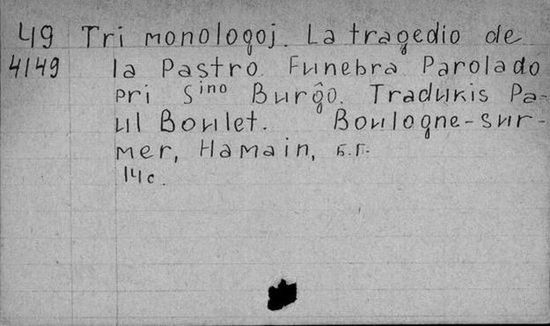 49 Tri monologoj. La tragedio de
4149 la Pastro. Funebra Parolado
pri S^ino Burĝo. Tradukis Pa-
ul Boulet. Boulogne-sur-
mer, Hamain, б.г.
14с.